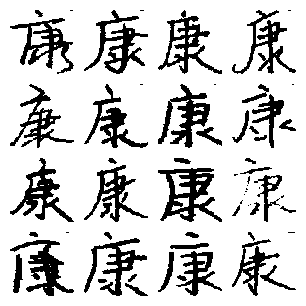 康康康康
康康康康
康康康康
康康康康